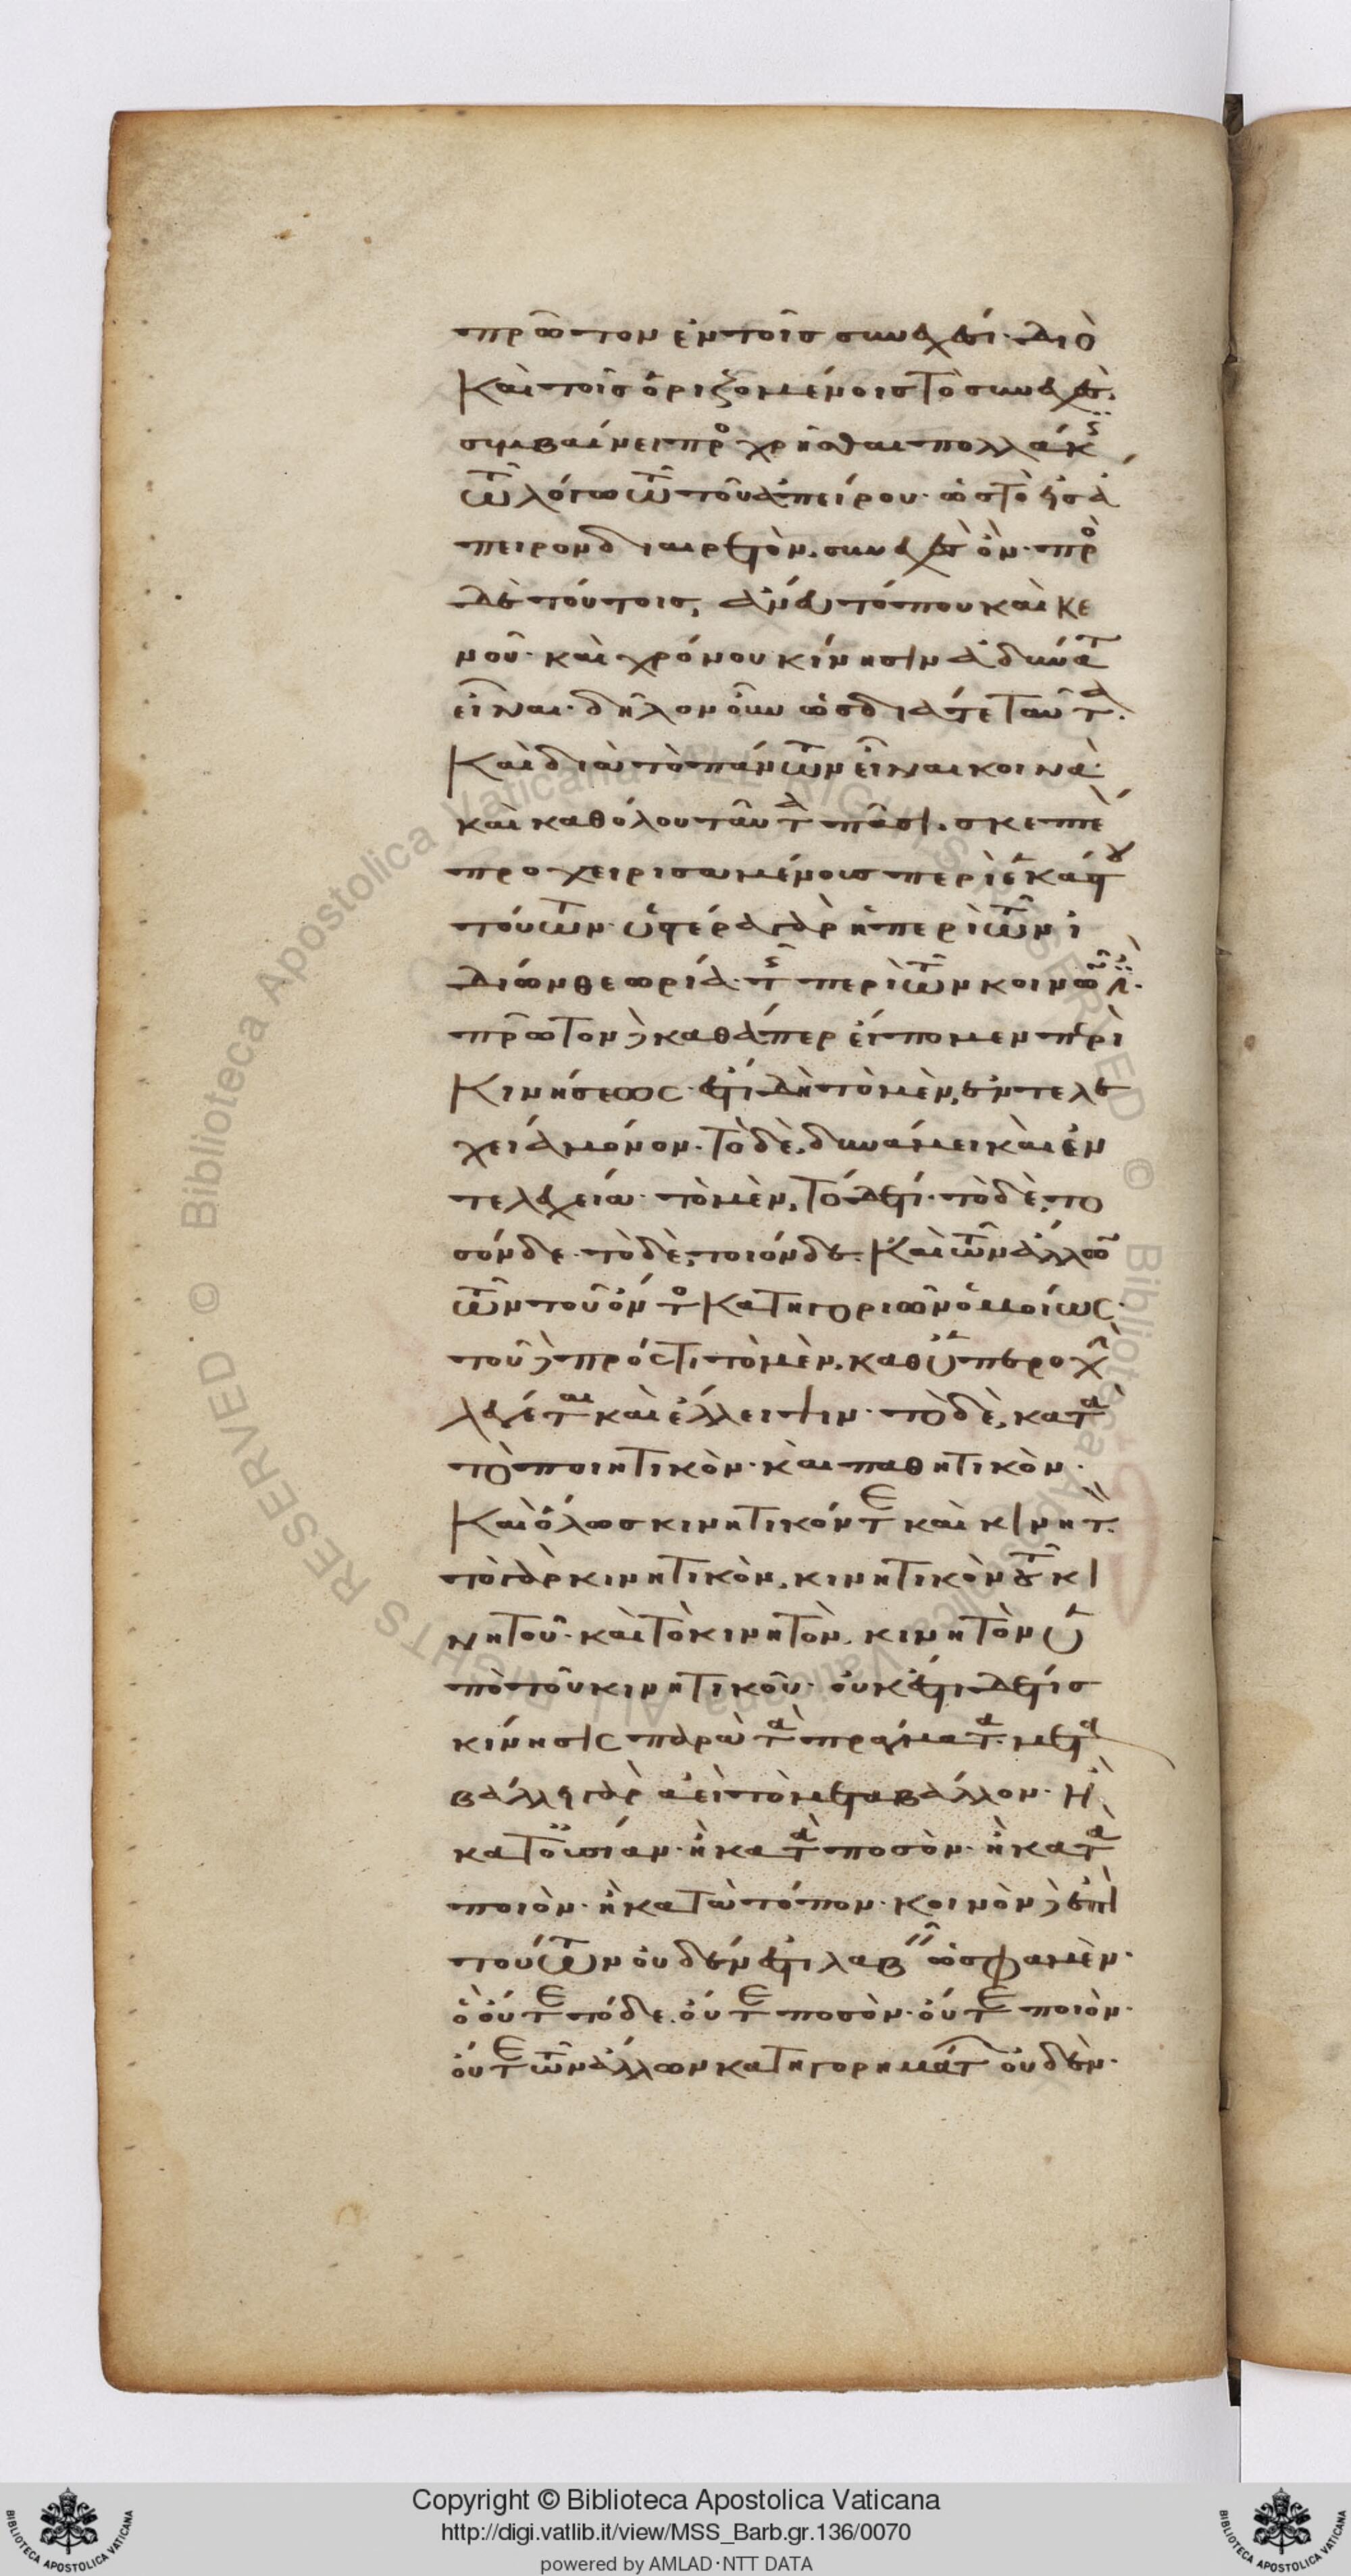 πρῶτον ἐν τοῖς συνεχέσι· διὸ
καὶ τοῖς ὁριζομένοις τὸ συνεχὲς.
συμβαίνει προσχρῆσθαι πολλάκις
τῶ λόγω τῶ τοῦ ἀπείρου· ὡς τὸ εἰς ἄ
πειρον διαιρετὸν, συνεχὲς ὂν· πρὸς
δὲ τούτοις, ἄνευ τόπου καὶ κε
νοῦ· καὶ χρόνου κίνησιν ἀδύνατον
εἶναι· δῆλον οὖν ὡς διά τε ταῦτα.
Καὶ διὰ τὸ πάντων εἶναι κοινὰ·
καὶ καθόλου ταῦτα πᾶσι. σκεπτέον
προχειρισαμένοις περὶ ἑκάστου
τούτων· ὑστέρα γὰρ ἡ περὶ τῶν ἰ
δίων θεωρία· τῆς περὶ τῶν κοινῶν ἐστι.
πρῶτον, καθάπερ εἴπομεν περὶ
Κινήσεως· ἔστι δὴ τὸ μὲν, ἐντελε
χεία μόνον. τὸ δὲ, δυνάμει καὶ ἐν
τελεχεία· τὸ μὲν, τόδε τι· τὸ δὲ, το
σόνδε· τὸ δὲ, ποιόνδε. Καὶ τῶν ἄλλων
τῶν τοῦ ὄντος κατηγοριῶν ὁμοίως·
τοῦ, πρός τι τὸ μὲν, καθ' ὑπεροχὴν
λέγεται καὶ ἔλλειψιν· τὸ δὲ, κατὰ
τὸ ποιητικὸν· καὶ παθητικὸν.
Καὶ ὅλως κινητικόν τε καὶ κινητὸν.
τὸ γὰρ κινητικὸν, κινητικὸν τοῦ κι
νητοῦ· καὶ τὸ κινητὸν, κινητὸν ὑ
πὸ τοῦ κινητικοῦ· οὐκ ἔστι δέ τις
κίνησις παρὰ τὰ πράγματα. μετα
βάλλει γὰρ ἀεὶ τὸ μεταβάλλον· ἢ
κατ' οὐσίαν· ἢ κατὰ ποσὸν· ἢ κατὰ
ποιὸν· ἢ κατὰ τόπον· κοινὸν, ἐπὶ
τούτων οὐδέν ἔστι λαβεῖν ὡς φαμὲν·
ὃ οὔτε τόδε. οὔτε ποσὸν· οὔτε ποιὸν·
οὔτε τῶν ἄλλων κατηγορημάτων οὐδὲν·
Copyright © Biblioteca Apostolica Vaticana
http://digi.vatlib.it/view/MSS_Barb.gr.136/0070
powered by AMLAD·NTT DATA